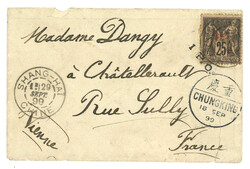 Madame Dangy
à Châtellerault
Rue Sully
France
Vienne
25
SHANG-HAI
29
SEPT
99
CHINE
重慶
CHUNGKING
18 SEP
99